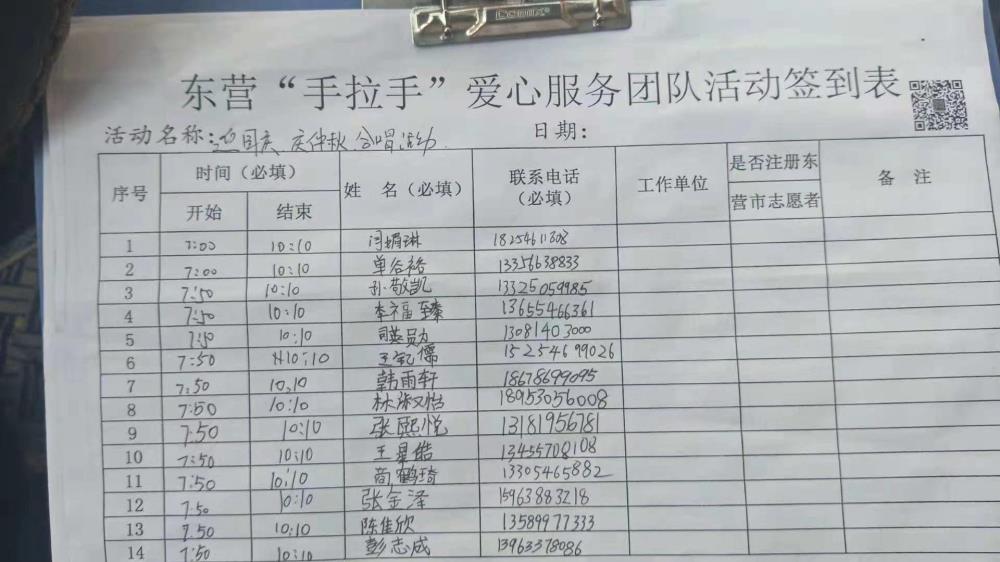 东营“手拉手”爱心服务团队活动签到表
活动名称:迎国庆 庆仲秋 合唱活动 日期:
序号 时间（必填） 姓 名（必填） 联系电话（必填） 工作单位 是否注册东营市志愿者 备 注
开始 结束
1 7:00 10:10 闫娟琳 18254611308
2 7:00 10:10 单谷裕 13356638833
3 7:50 10:10 孙敬凯 13325059985
4 7:50 10:10 李福臻 13655466361
5 7:50 10:10 13081403000
6 7:50 10:10 王礼儒 15254699026
7 7:50 10:10 韩雨轩 18678699095
8 7:50 10:10 18953056008
9 7:50 10:10 张熙悦 13181956781
10 7:50 10:10 王星皓 13455708108
11 7:50 10:10 商鹤琦 13305465882
12 7:50 10:10 张金泽 15963883218
13 7:50 10:10 陈佳欣 13589977333
14 7:50 10:10 彭志成 13963378086